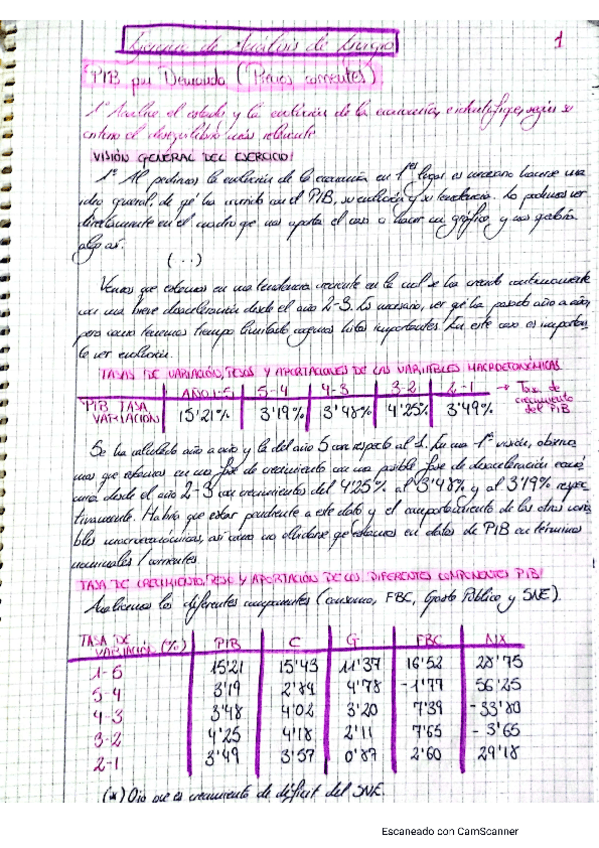 Ejercicio de Análisis de Grupo
1
PIB por Demanda (Precios corrientes)
1º Analice el estado y la evolución de la economía, e identifique, según su
criterio el desequilibrio más relevante
VISIÓN GENERAL DEL EJERCICIO:
1º Al pedirnos la evolución de la economía en 1er lugar es necesario hacerse una
idea general, de qé ha ocurrido con el PIB, su evolución y su tendencia. Lo podemos ver
directamente en el cuadro que nos aporta el caso o hacer un gráfico, y nos quedaría
algo así:
(...)
Vemos que estamos en una tendencia creciente en la cual se ha crecido continuamente
con una breve desaceleración desde el año 2-3. Es necesario, ver qé ha pasado año a año,
pero como tenemos tiempo limitado cogemos hitos importantes. En este caso es importan
te ver evolución.
TASAS DE VARIACIÓN, PESOS Y APORTACIONES DE LAS VARIABLES MACROECONÓMICAS
AÑO 1-5 5-4 4-3 3-2 2-1 → Tasa de crecimiento del PIB
PIB TASA VARIACIÓN 15'21% 3'19% 3'48% 4'25% 3'49%
Se ha calculado año a año y la del año 5 con respecto al 1. En una 1ª visión, observa
mos que estamos en una fase de crecimiento con una posible fase de desaceleración econó
mica desde el año 2-3 con crecimientos del 4'25% al 3'48% y al 3'19% respec-
tivamente. Habrá que estar pendiente a este dato y el comportamiento de las otras varia
bles macroeconómicas, así como no olvidarse qé estamos en datos de PIB en términos
nominales / corrientes
TASA DE CRECIMIENTO, PESO Y APORTACIÓN DE LOS DIFERENTES COMPONENTES PIB:
Analicemos los diferentes componentes (consumo, FBC, Gasto Público y SNE).
TASA DE VARIACIÓN (%) PIB C G FBC NX
1-5 15'21 15'43 11'37 16'52 28'75
5-4 3'19 2'84 4'78 -1'77 56'25
4-3 3'48 4'02 3'20 7'39 -33'80
3-2 4'25 4'18 2'11 7'65 -3'65
2-1 3'49 3'57 0'87 2'60 29'18
(*) Ojo que es crecimiento de déficit del SNE.
Escaneado con CamScanner